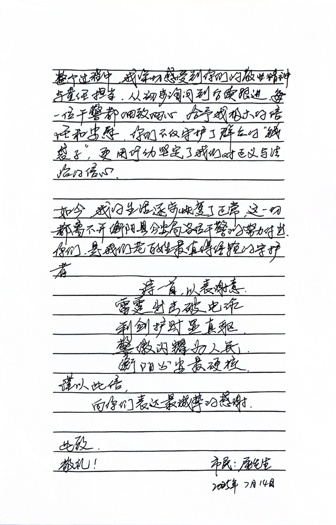 整个过程中，我深切感受到你们的敬业精神
与责任担当。从初步询问到后续跟进，每
一位干警都细致耐心，给予我极大的信
任和安慰。你们不仅守护了群众的“钱
袋子”，更用行动坚定了我们对正义与法
治的信心。
如今，我的生活逐步恢复了正常，这一切
都离不开衡阳县公安局各位干警的努力付出
你们，是我们老百姓最值得信赖的守护
者
诗一首，以表谢意
雷霆出击破电诈
利剑护财显真
警徽闪耀为人民
衡阳公安最硬核
谨以此信，
向你们表达最诚挚的感谢。
此致
敬礼！
市民：
2025年7月14日